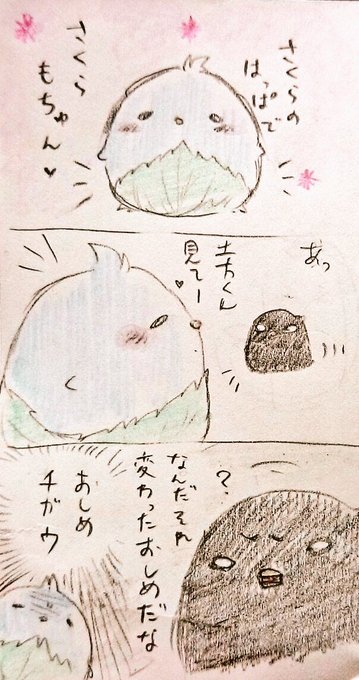 さくらの
はっぱで
さくら
もちゅん♥
あっ
土方くん
見てー♥
?
なんだそれ
変わったおしめだな
おしめ
チガウ